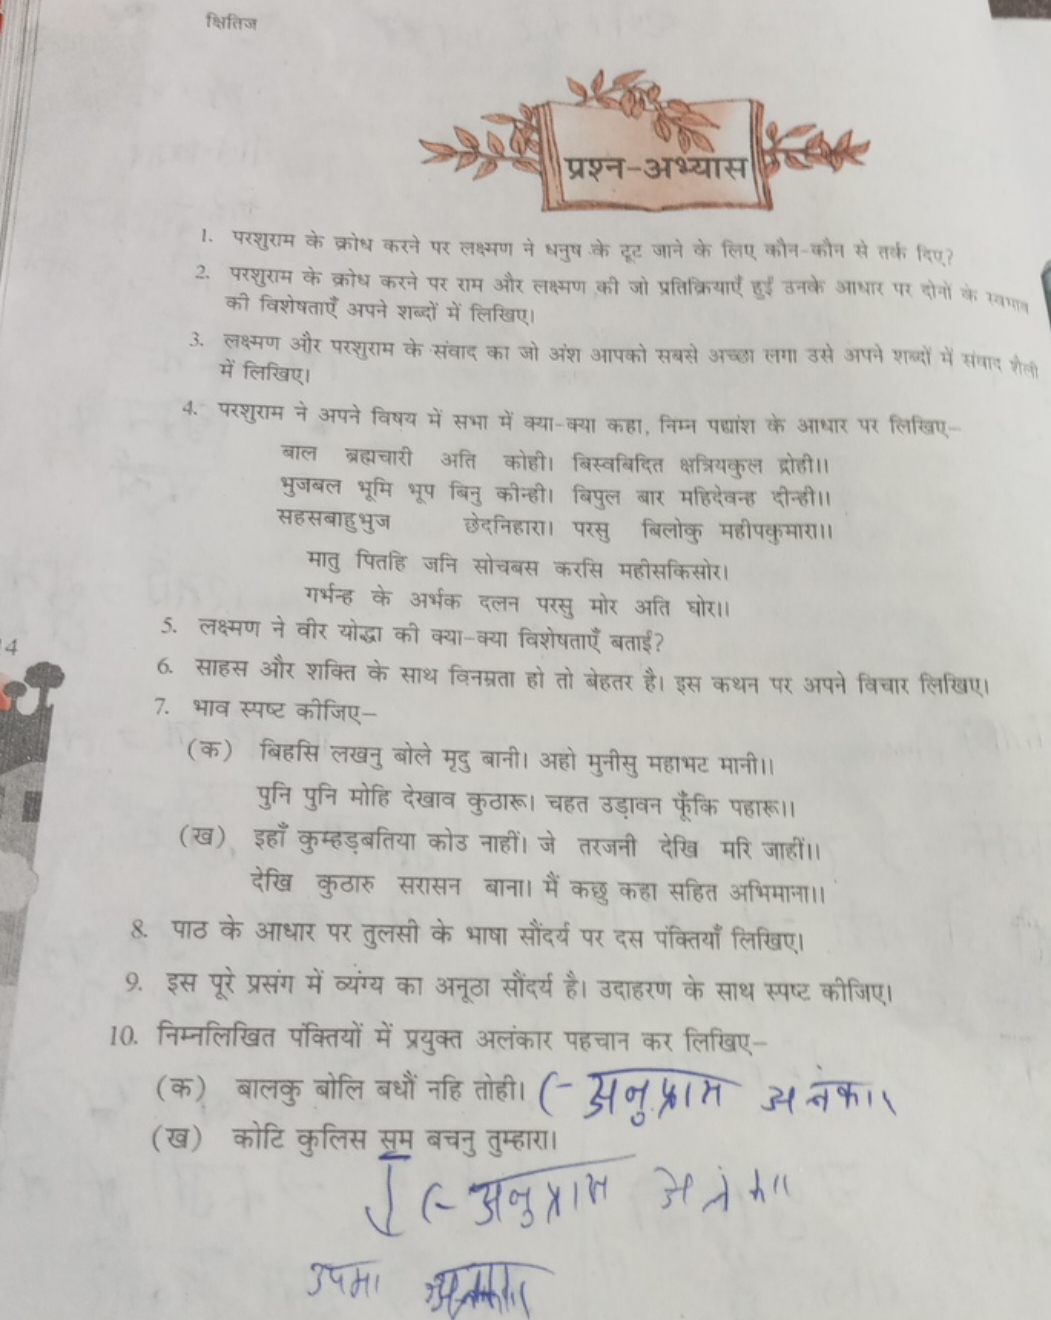 क्षितिज
प्रश्न-अभ्यास
1. परशुराम के क्रोध करने पर लक्ष्मण ने धनुष के टूट जाने के लिए कौन-कौन से तर्क दिए?
2. परशुराम के क्रोध करने पर राम और लक्ष्मण की जो प्रतिक्रियाएँ हुईं उनके आधार पर दोनों के स्वभाव
की विशेषताएँ अपने शब्दों में लिखिए।
3. लक्ष्मण और परशुराम के संवाद का जो अंश आपको सबसे अच्छा लगा उसे अपने शब्दों में संवाद शैली
में लिखिए।
4. परशुराम ने अपने विषय में सभा में क्या-क्या कहा, निम्न पद्यांश के आधार पर लिखिए–
बाल ब्रह्मचारी अति कोही। बिस्वबिदित क्षत्रियकुल द्रोही।।
भुजबल भूमि भूप बिनु कीन्ही। बिपुल बार महिदेवन्ह दीन्ही।।
सहसबाहुभुज छेदनिहारा। परसु बिलोकु महीपकुमारा।।
मातु पितहि जनि सोचबस करसि महीसकिसोर।
गर्भन्ह के अर्भक दलन परसु मोर अति घोर।।
5. लक्ष्मण ने वीर योद्धा की क्या-क्या विशेषताएँ बताईं?
14
6. साहस और शक्ति के साथ विनम्रता हो तो बेहतर है। इस कथन पर अपने विचार लिखिए।
7. भाव स्पष्ट कीजिए–
(क) बिहसि लखनु बोले मृदु बानी। अहो मुनीसु महाभट मानी।।
पुनि पुनि मोहि देखाव कुठारू। चहत उड़ावन फूँकि पहारू।।
(ख) इहाँ कुम्हड़बतिया कोउ नाहीं। जे तरजनी देखि मरि जाहीं।।
देखि कुठारु सरासन बाना। मैं कछु कहा सहित अभिमाना।।
8. पाठ के आधार पर तुलसी के भाषा सौंदर्य पर दस पंक्तियाँ लिखिए।
9. इस पूरे प्रसंग में व्यंग्य का अनूठा सौंदर्य है। उदाहरण के साथ स्पष्ट कीजिए।
10. निम्नलिखित पंक्तियों में प्रयुक्त अलंकार पहचान कर लिखिए–
(क) बालकु बोलि बधौं नहि तोही। (- अनुप्रास अलंकार
(ख) कोटि कुलिस सम बचनु तुम्हारा।
(- अनुप्रास अलंकार
उपमा अलंकार